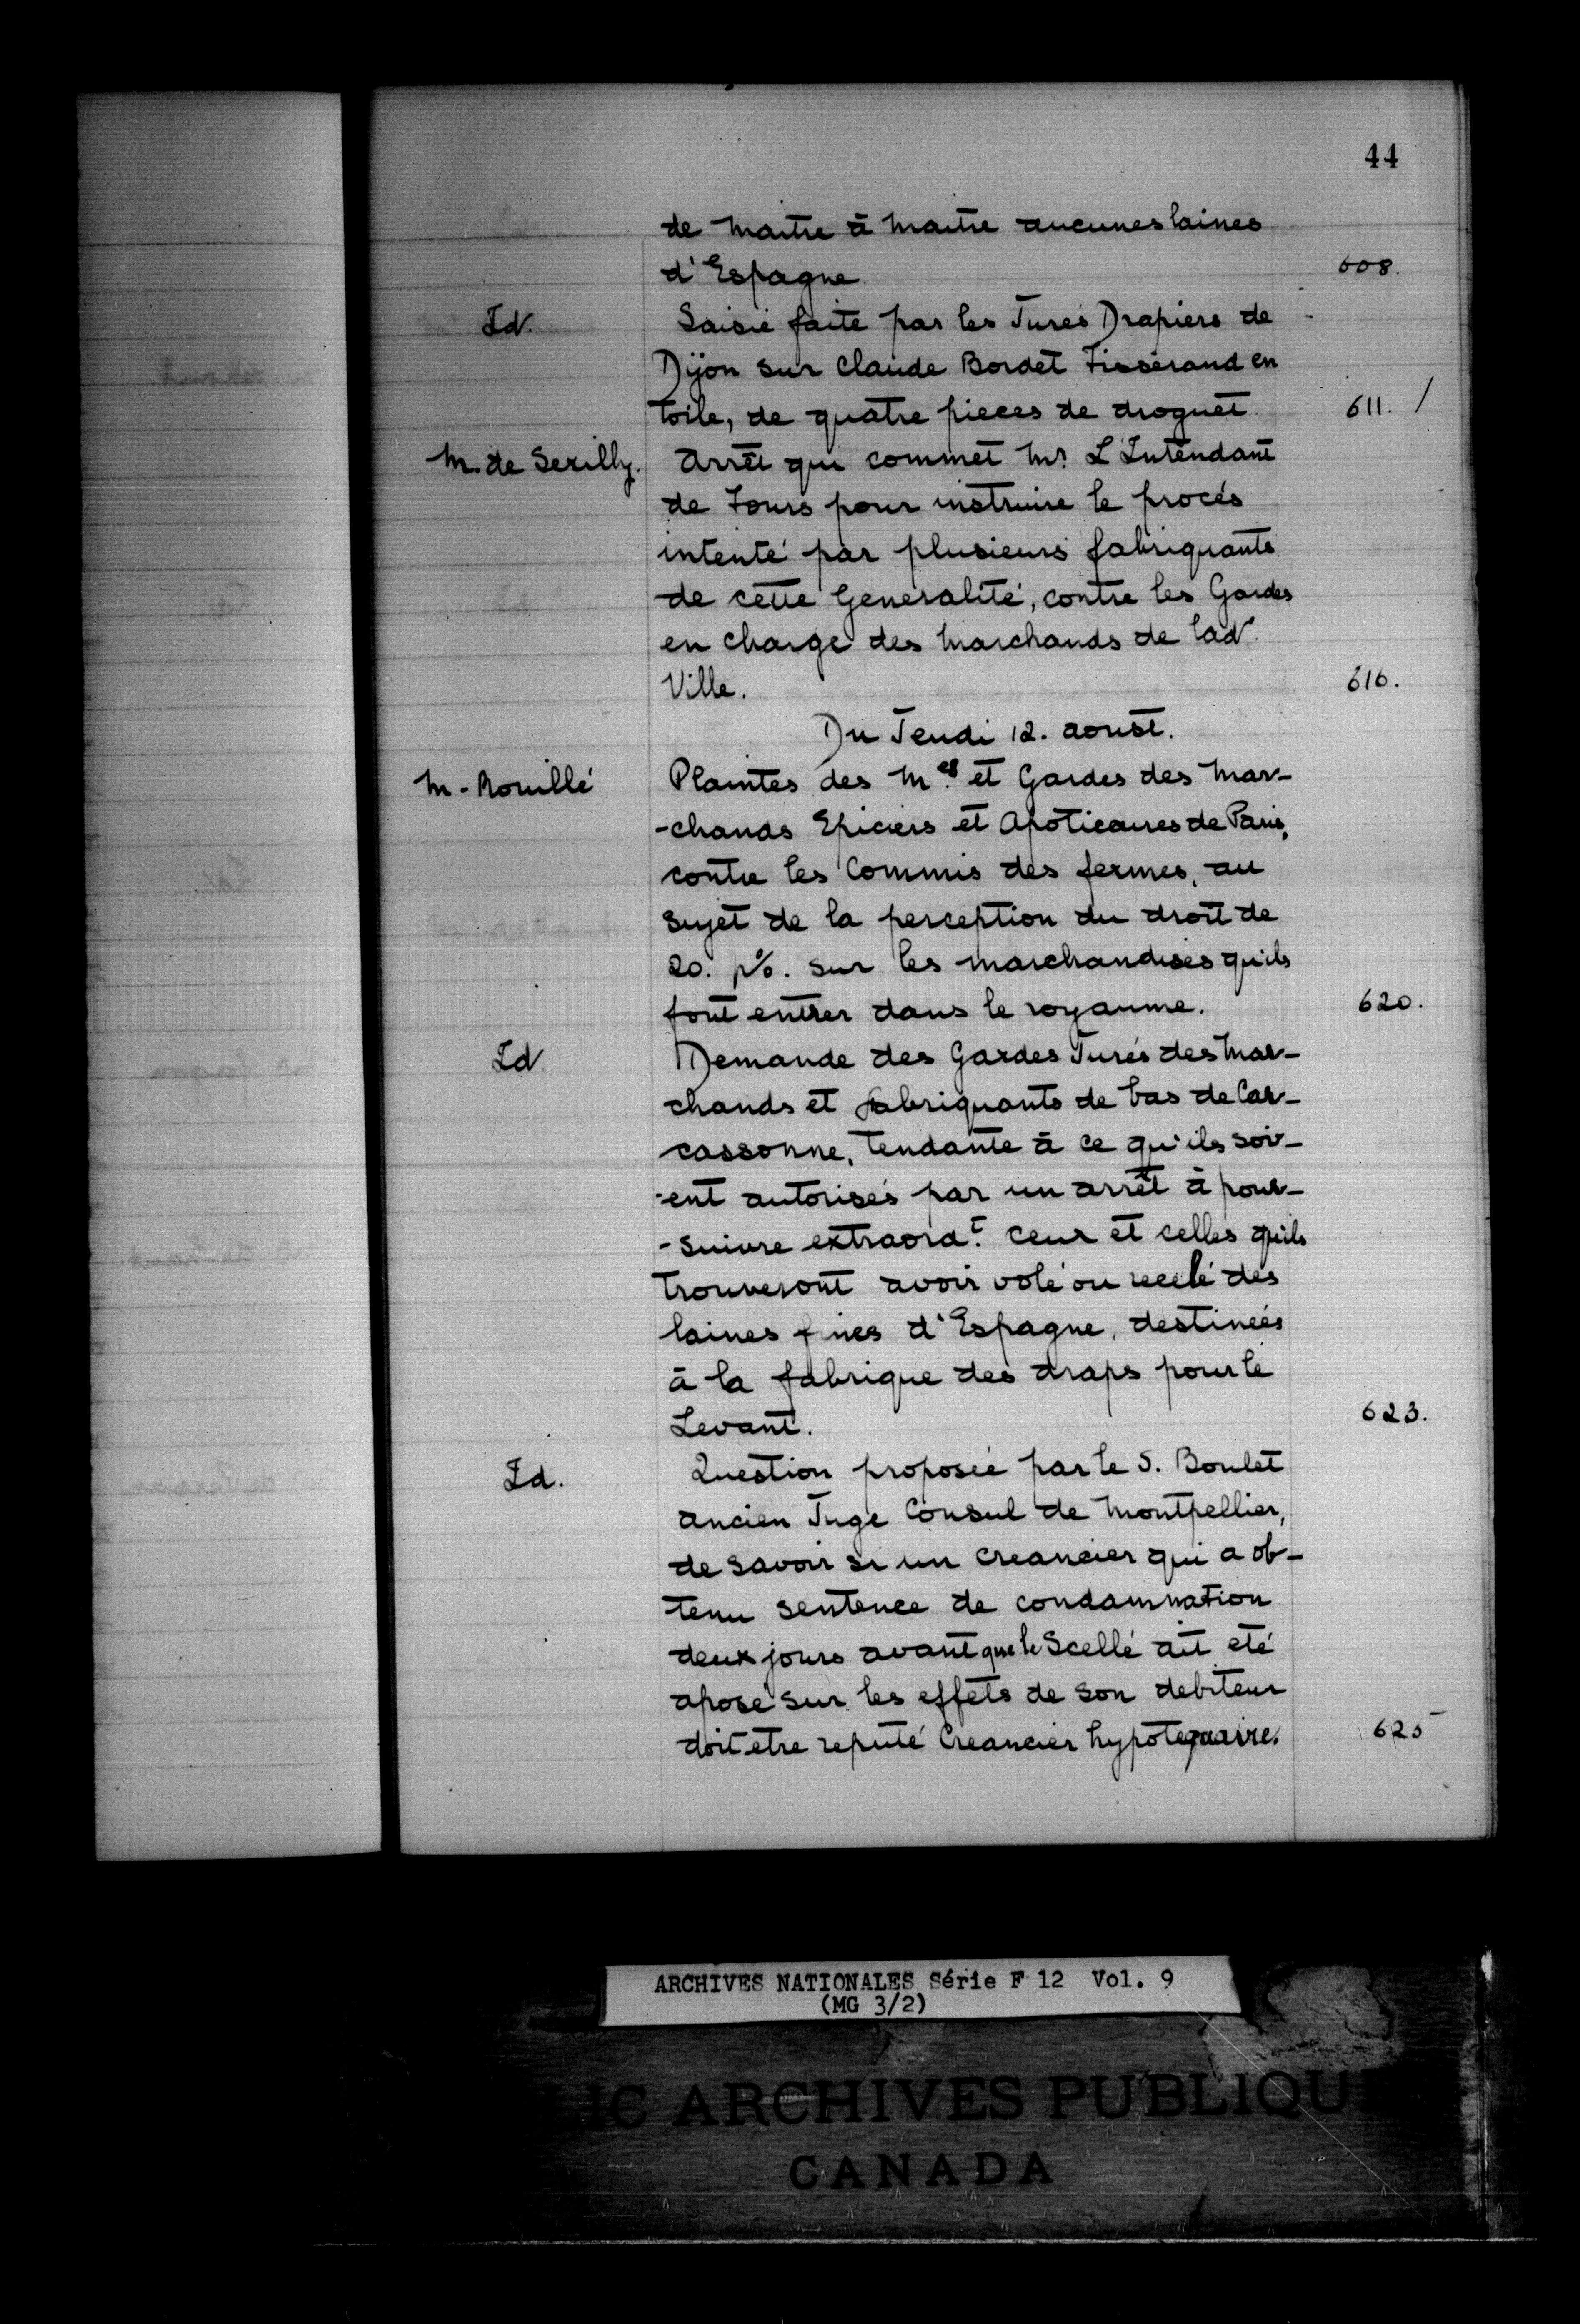 44
de Maitre à Maitre aucunes laines
d'Espagne. 608.
Id. Saisie faite par les Jurés Drapiers de
Dijon sur Claude Bordet Tisserand en
toile, de quatre pieces de droguet 611. /
M. de Serilly. Arrêt qui commet Mr. L'Intendant
de Tours pour instruire le procés
intenté par plusieurs fabriquants
de cette Generalité, contre les Gardes
en charge des Marchands de lad.
Ville. 616.
Du Jeudi 12. aoust.
M. Rouillé Plaintes des M.es et Gardes des Mar-
-chands Epiciers et Apoticaires de Paris,
contre les Commis des fermes, au
sujet de la perception du droit de
20. p%. sur les marchandises qu'ils
font entrer dans le royaume. 620.
Id. Demande des Gardes Jurés des Mar-
chands et fabriquants de bas de Car-
cassonne, tendante à ce qu'ils soi-
-ent autorisés par un arrêt à pour-
-suivre extraord.t ceux et celles qu'ils
trouveront avoir volé ou recelé des
laines fines d'Espagne, destinées
à la fabrique des draps pour le
Levant. 623.
Id. Question proposée par le S. Boulet
ancien Juge Consul de Montpellier,
de savoir si un creancier qui a ob-
tenu sentence de condamnation
deux jours avant que le Scellé ait eté
aposé sur les effets de son debiteur
doit etre reputé Creancier hypotequaire. 625
ARCHIVES NATIONALES Série F 12 Vol. 9
(MG 3/2)
IC ARCHIVES PUBLIQU
CANADA